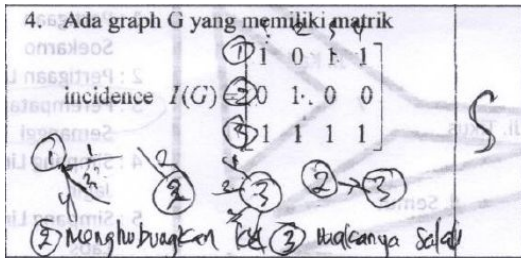 4. Ada graph G yang memiliki matrik
1 2 3 4
① 1 0 1 1
incidence I(G) = ② 0 1 0 0
③ 1 1 1 1
S
① 1 3 4
2 ②
1 2 3 ③
② → ③
② Menghubungkan ke ③ Makanya Salah